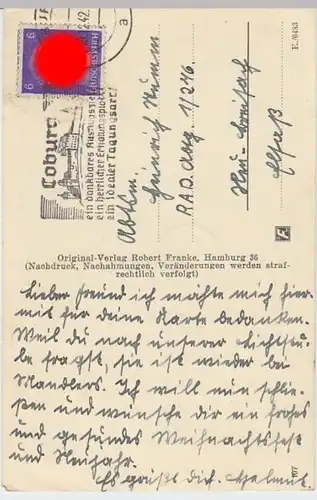 6 6
DEUTSCHES REICH
.2.42.
a
Coburg
ein dankbares Ausflugsziel
ein herrlicher Erholungsplatz
ein idealer Tagungsort!
E./0483
Abthm.
Heinrich Numm
R.A.D. Abtg. 1/276
Neu-Breisach
Elsaß
F
Original-Verlag Robert Franke, Hamburg 36
(Nachdruck, Nachahmungen, Veränderungen werden straf-
rechtlich verfolgt)
Lieber Freund ich möchte mich hier-
mit für deine Karte bedanken.
Weil du nach unserer Lichtstu-
be fragst, sie ist wieder bei
Mandlers. Ich will nun schlie-
ßen und wünsche dir ein frohes
und gesundes Weihnachtsfest
und Neujahr.
Es grüßt dich. Helmut.